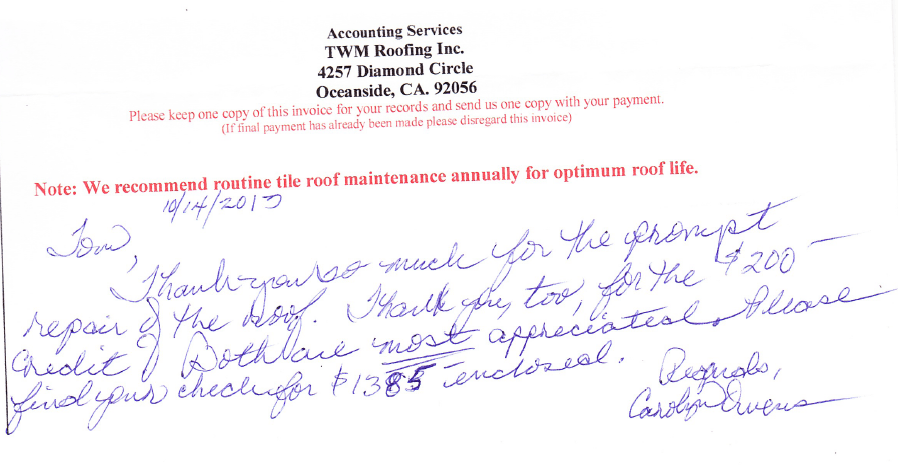 Accounting Services
TWM Roofing Inc.
4257 Diamond Circle
Oceanside, CA. 92056
Please keep one copy of this invoice for your records and send us one copy with your payment.
(If final payment has already been made please disregard this invoice)
Note: We recommend routine tile roof maintenance annually for optimum roof life.
10/14/201
Tom,
Thank you so much for the prompt
repair of the roof. Thank you, too, for the $200-
credit. Both are most appreciated. Please
find your check for $1385 enclosed.
Regards,
Carolyn Owens